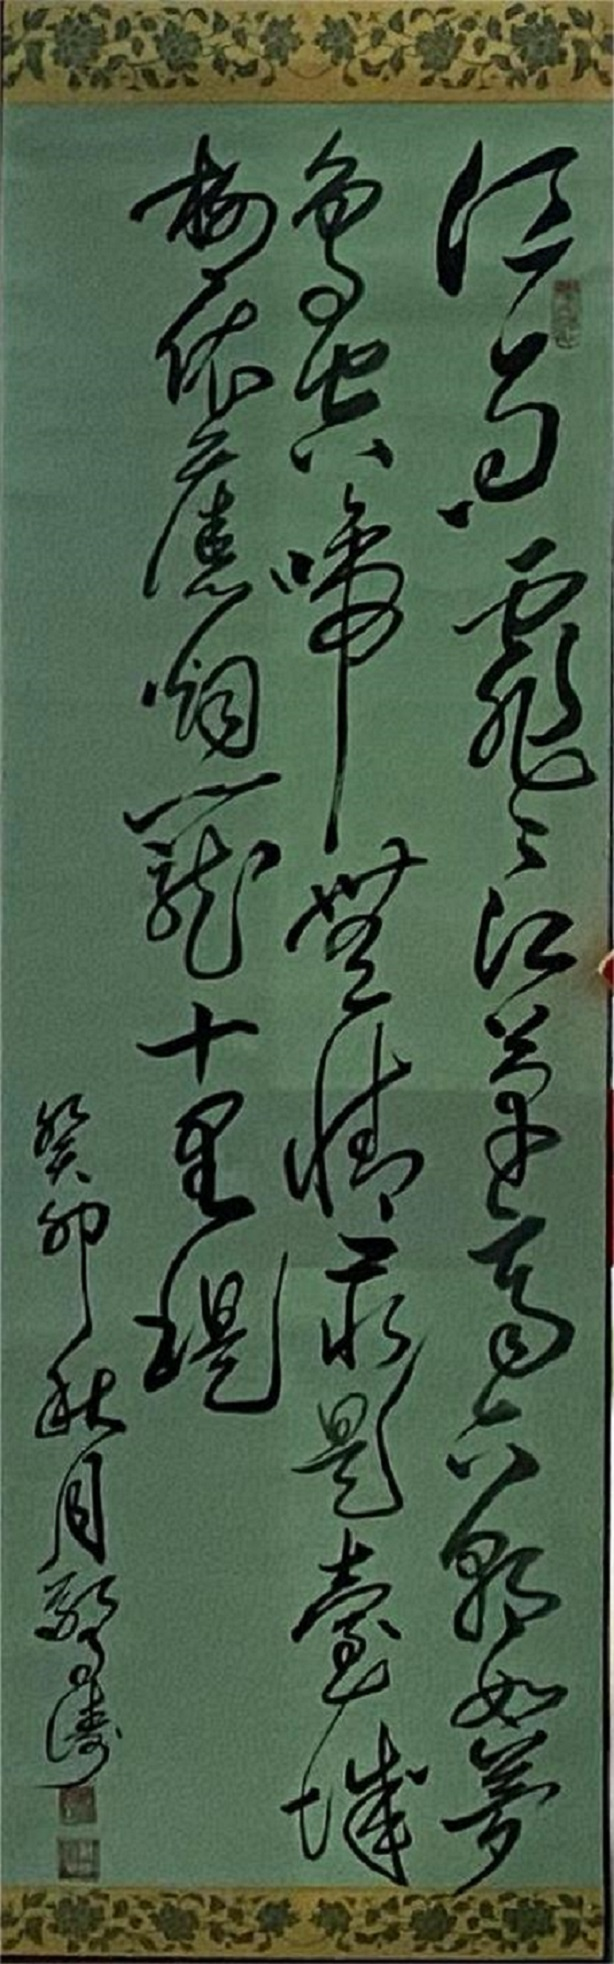 江雨霏々江草齊六朝如夢
鳥空啼無情最是臺城
柳依舊烟籠十里堤
癸卯秋月驚濤